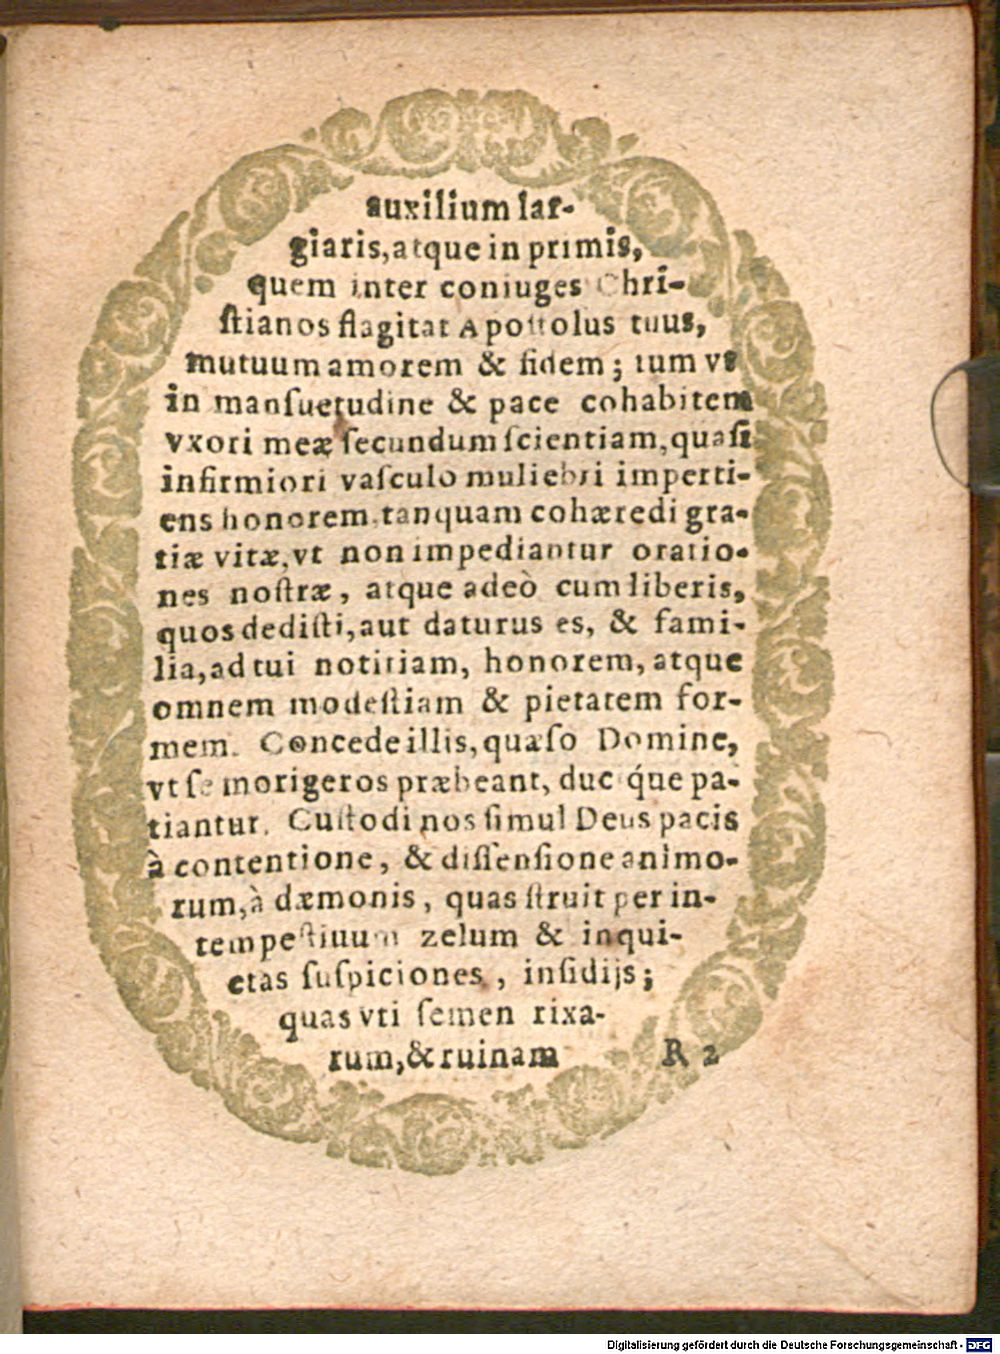 auxilium lar-
giaris, atque in primis,
quem inter coniuges Chri-
ſtianos flagitat Apoſtolus tuus,
mutuum amorem & fidem; tum vt
in manſuetudine & pace cohabitem
vxori meæ ſecundum ſcientiam, quaſi
infirmiori vaſculo muliebri imperti-
ens honorem, tanquam cohæredi gra-
tiæ vitæ, vt non impediantur oratio-
nes noſtræ, atque adeò cum liberis,
quos dediſti, aut daturus es, & fami-
lia, ad tui notitiam, honorem, atque
omnem modeſtiam & pietatem for-
mem. Concede illis, quæſo Domine,
vt ſe morigeros præbeant, duciq́ue pa-
tiantur. Cuſtodi nos ſimul Deus pacis
à contentione, & diſſenſione animo-
rum, à dæmonis, quas ſtruit per in-
tempeſtiuum zelum & inqui-
etas ſuſpiciones, inſidijs;
quas vti ſemen rixa-
rum, & ruinam
R 2
Digitalisierung gefördert durch die Deutsche Forschungsgemeinschaft - DFG